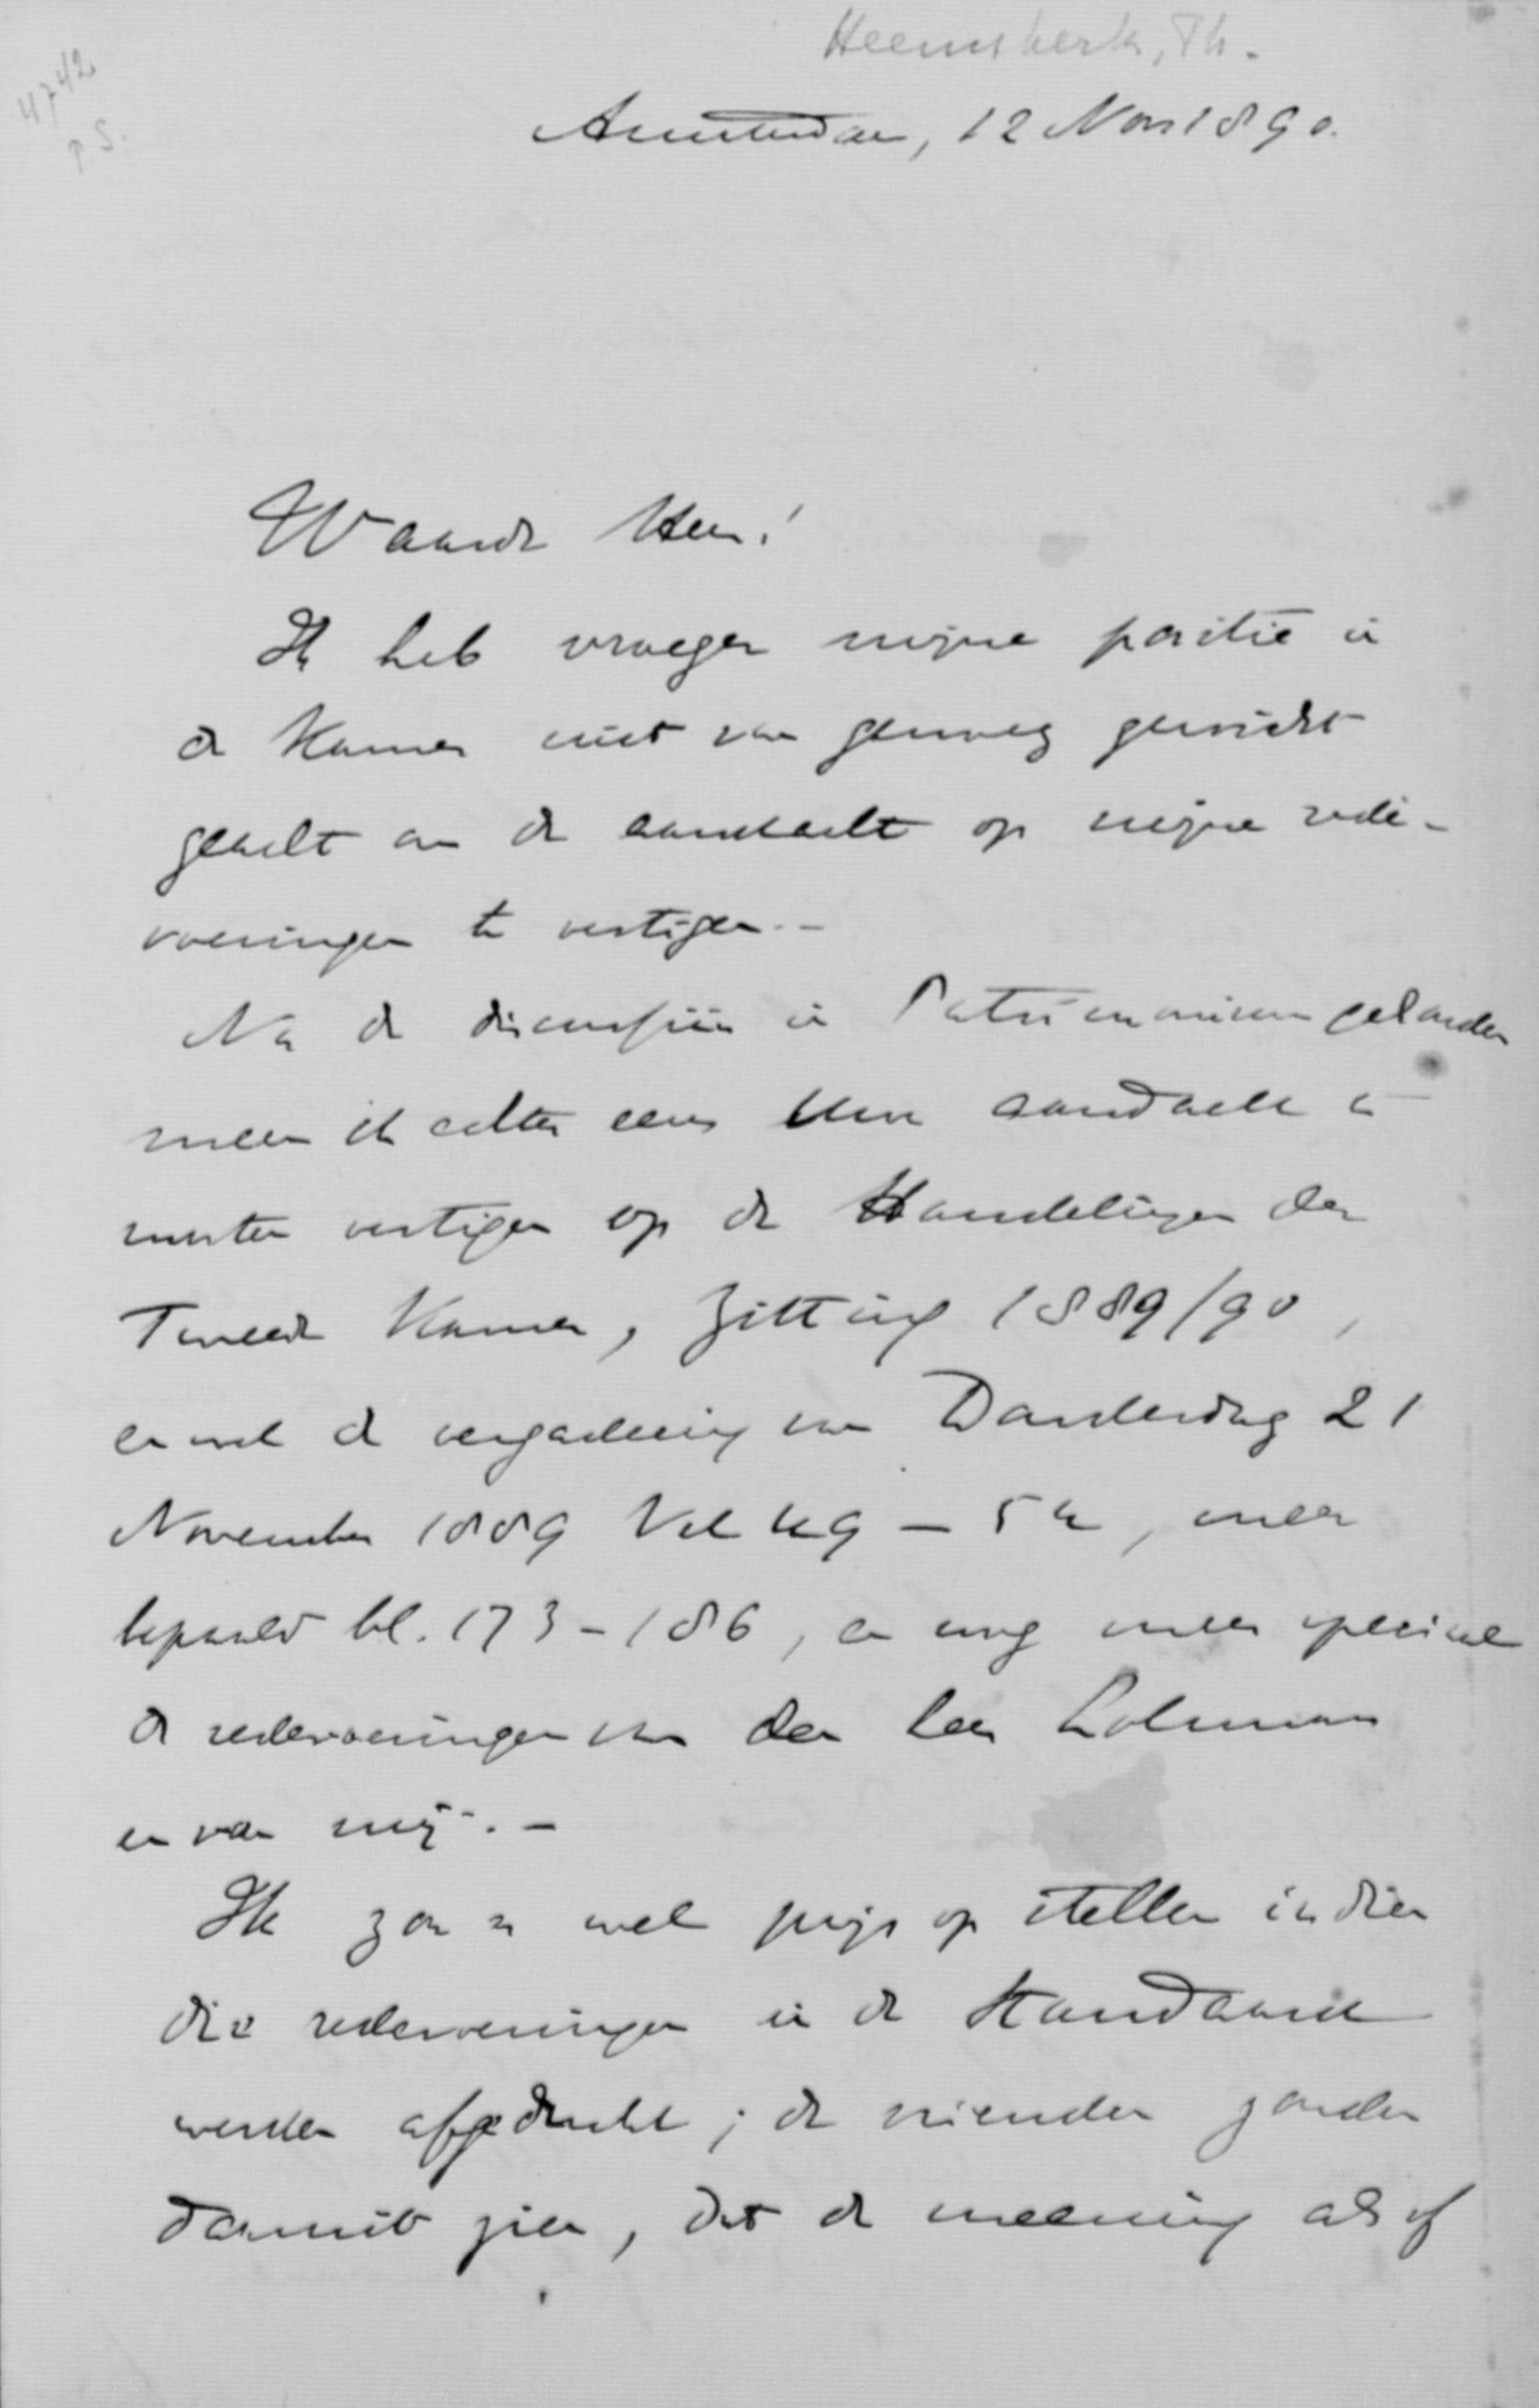 Heemskerk, Th.
4742
P S.
Amsterdam, 12 Nov 1890.
Waarde Heer!
Ik heb vroeger mijne positie in
de Kamer niet van genoeg gewicht
geacht om de aandacht op mijne rede-
voeringen te vestigen. -
Na de discussiën in Patrimonium gehouden
meen ik echter eens Uwe aandacht te
moeten vestigen op de Handelingen der
Tweede Kamer, Zitting 1889/90,
en wel de vergadering van Donderdag 21
November 1889 Vel 49 - 52, meer
bepaald bl. 173 - 186, en nog meer speciaal
de redevoeringen van den heer Lohman
en van mij. -
Ik zou er wel prijs op stellen indien
die redevoeringen in de Standaard
werden afgedrukt; de vrienden zouden
daaruit zien, dat de meening alsof